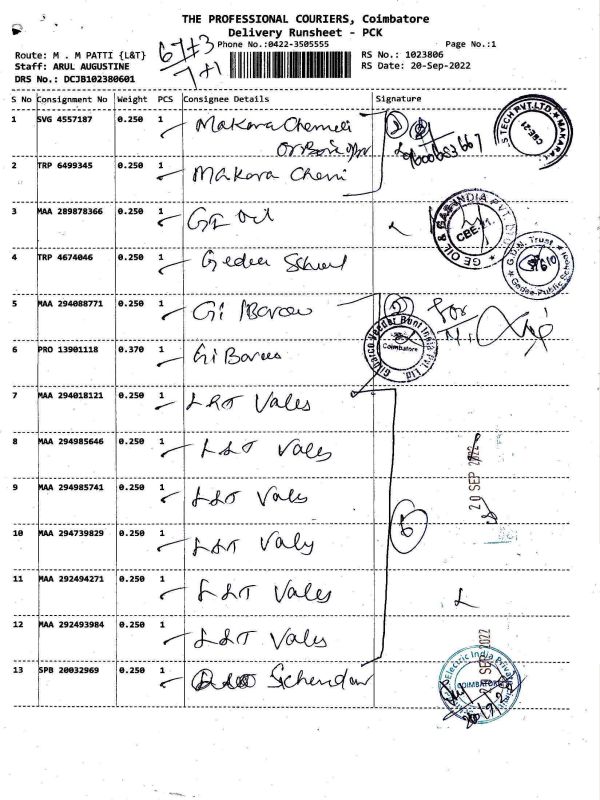 THE PROFESSIONAL COURIERS, Coimbatore
Delivery Runsheet - PCK
Phone No.:0422-3505555
Page No.:1
Route: M . M PATTI {L&T}
RS No.: 1023806
Staff: ARUL AUGUSTINE
RS Date: 20-Sep-2022
DRS No.: DCJB102380601
67#3
7+1
S No Consignment No Weight PCS Consignee Details Signature
1 SVG 4557187 0.250 1 Makara Chemeli
2 TRP 6499345 0.250 1 Makara Chemi
3 MAA 289878366 0.250 1 GE Oil
4 TRP 4674046 0.250 1 Gedee School
5 MAA 294088771 0.250 1 Gi Barco
6 PRO 13901118 0.370 1 Gi Barco
7 MAA 294018121 0.250 1 L&T Vales
8 MAA 294985646 0.250 1 L&T Vales
9 MAA 294985741 0.250 1 L&T Vales
10 MAA 294739829 0.250 1 L&T Valy
11 MAA 292494271 0.250 1 L&T Vales
12 MAA 292493984 0.250 1 L&T Vales
13 SPB 20032969 0.250 1 Schendar
S TECH PVT.LTD ★ MAKARA
CBE-21
GE OIL & GAS INDIA PVT. LTD
CBE-21.
G.D.N. Trust
Gedee Public School
641910
2
For
Gilbarco Veeder Root India Pvt. Ltd.
Coimbatore
20 SEP 2022
6
Electric India Private
COIMBATORE
20 SEP 2022
20/9/22